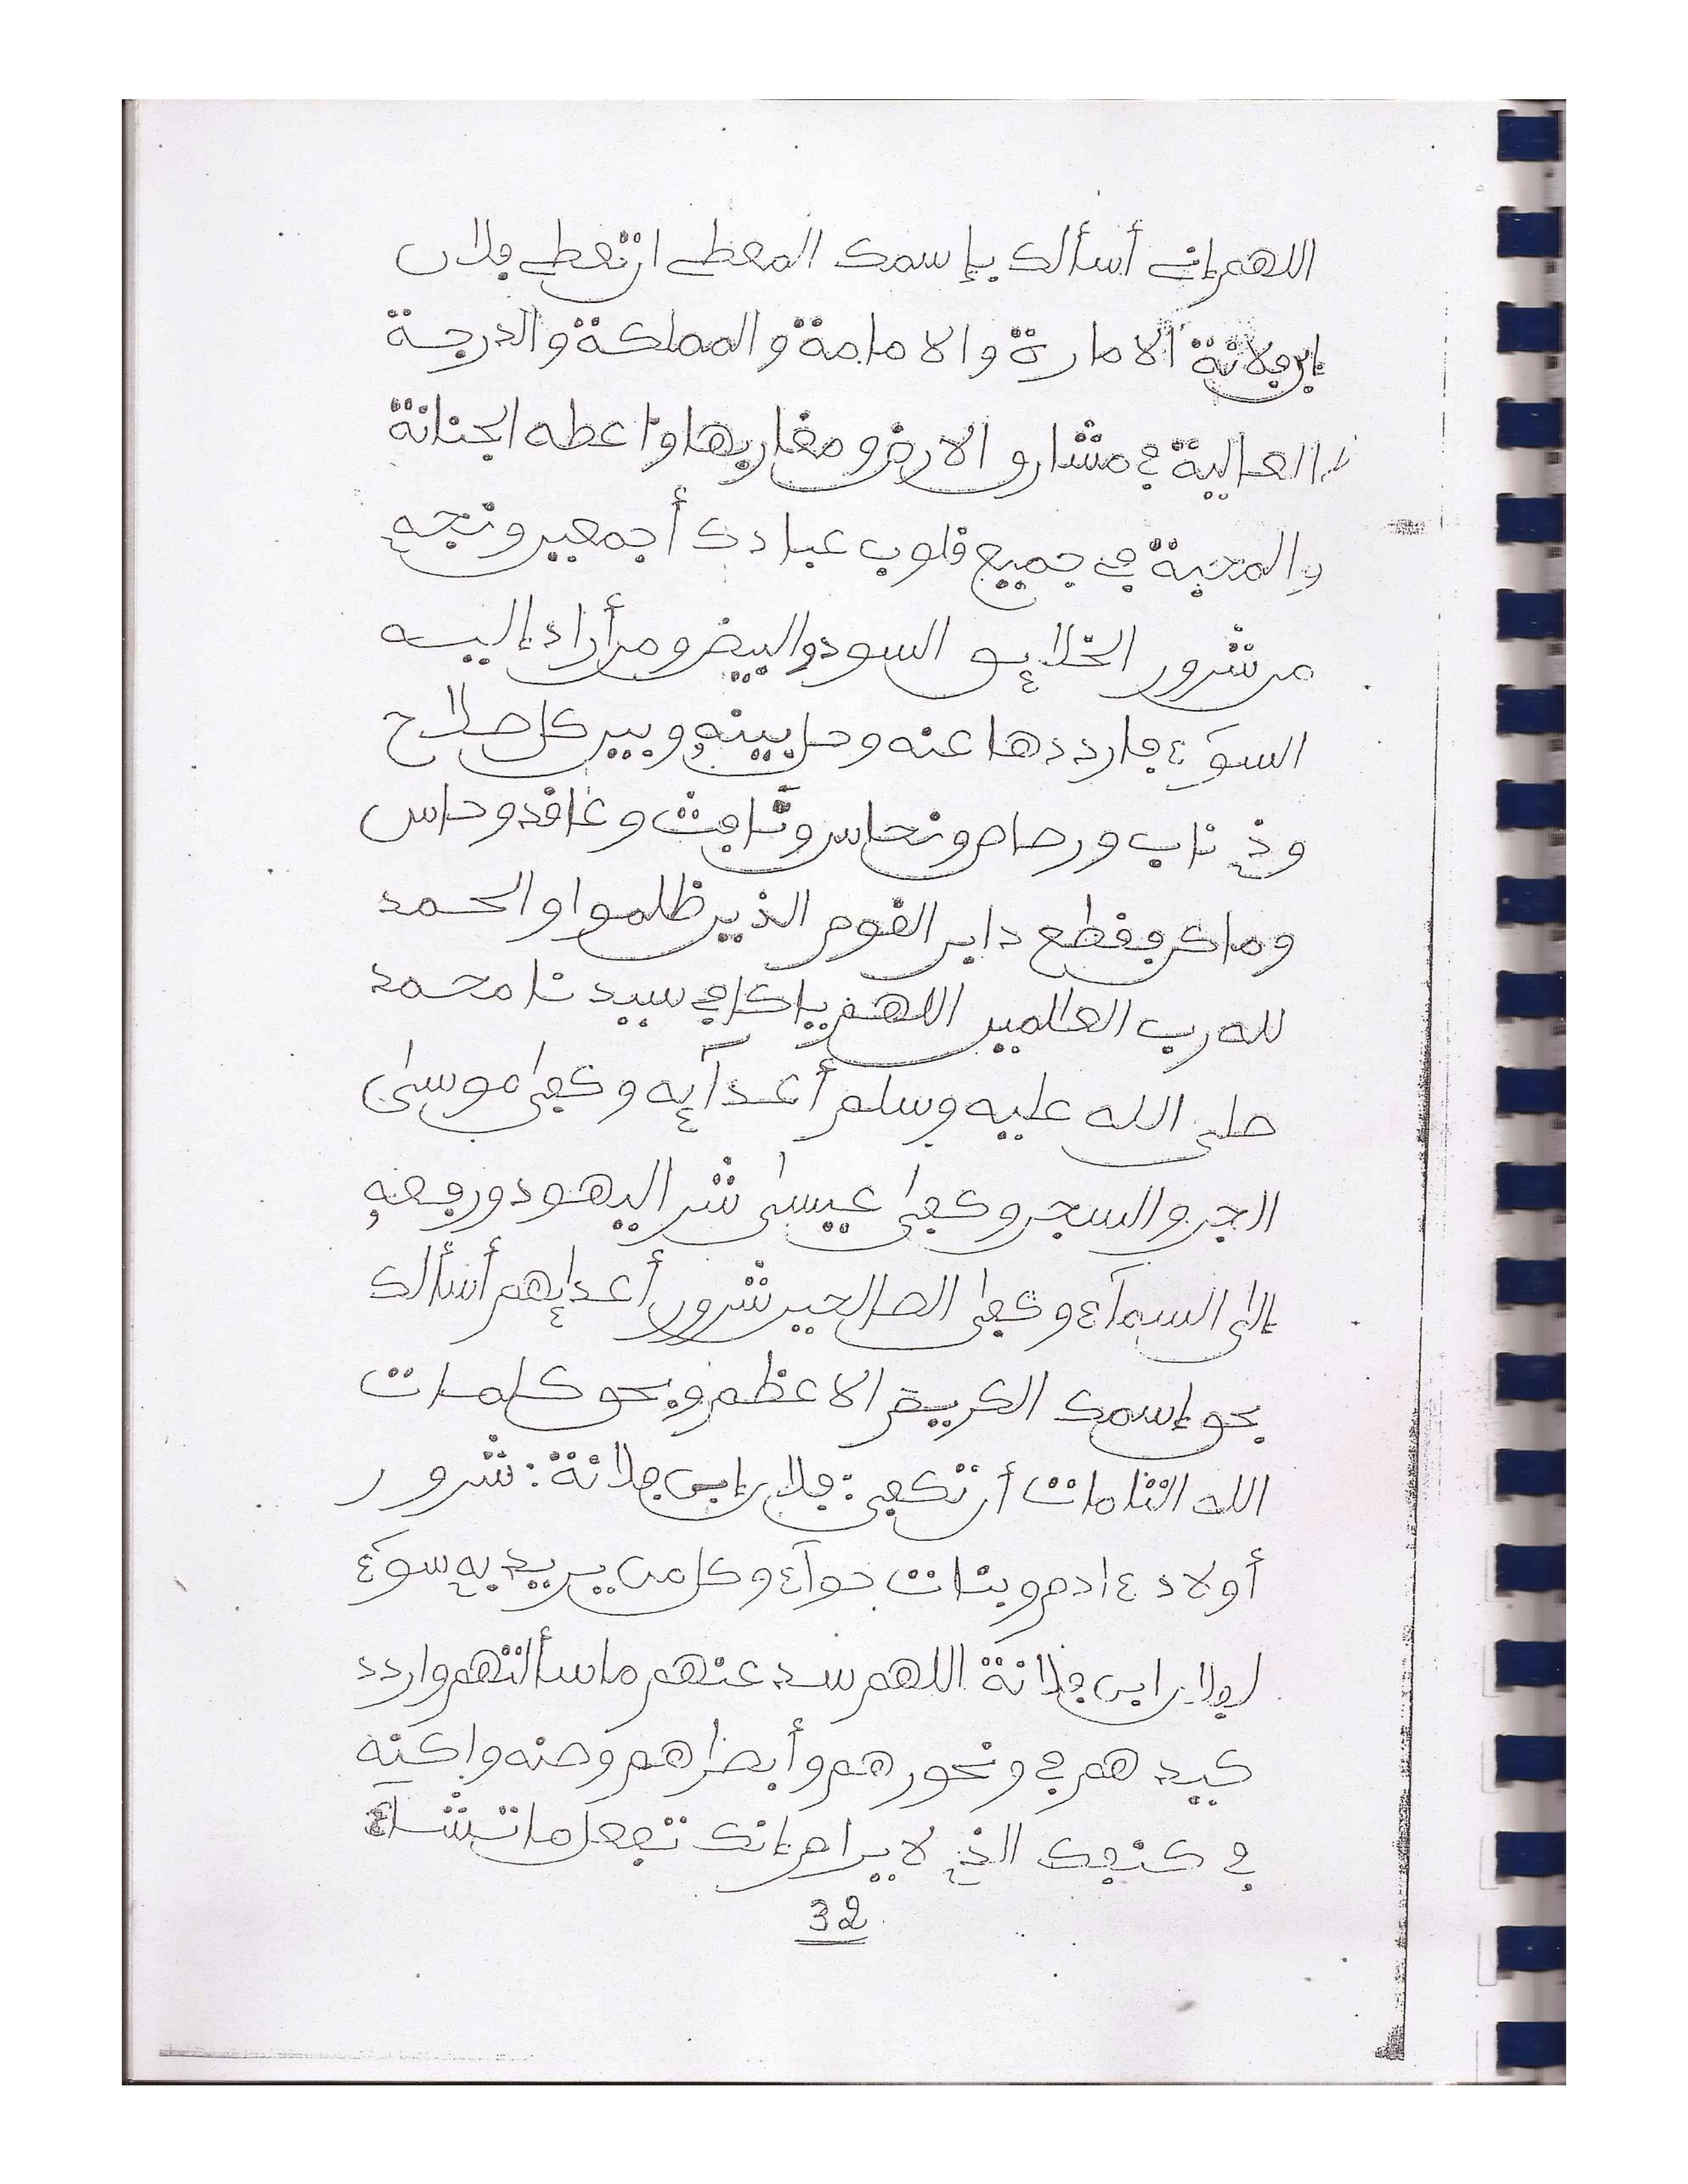 اللهم إني أسألك بإسمك المعطي ان تعطي فلان
إبن فلانة الامارة والامامة والمملكة والدرجة
العالية في مشارق الارض ومغاربها واعطه الجنانة
والمحبة في جميع قلوب عبادك أجمعين ونجه
من شرور الخلايق السود والبيض ومن أراد إليه
السوء فارددها عنه وحل بينه وبين كل صلاح
وذي ناب ورصاص ونحاس و وعاقد وحاس
وماكر فقطع دابر القوم الذين ظلموا والحمد
لله رب العالمين اللهم ياكافي سيدنا محمد
صلى الله عليه وسلم أعدآيه وكفى موسى
الجن والسحر وكفى عيسى شر اليهود ورفعه
إلى السمآء وكفى الصالحين شرور أعدايهم أسألك
بحق إسمك الكريم الاعظم وبحق كلمات
الله التامات أن تكفي: فلان إبن فلانة: شرور
أولاد ءادم وبنات حوآء وكل من يريد به سوء
لفلان ابن فلانة اللهم سد عنهم ما سألتهم واردد
كيدهم في ونحورهم وأبصارهم وصنه واكنه
في كنفك الذي لا يرام إنك تفعل ما تشاء
32